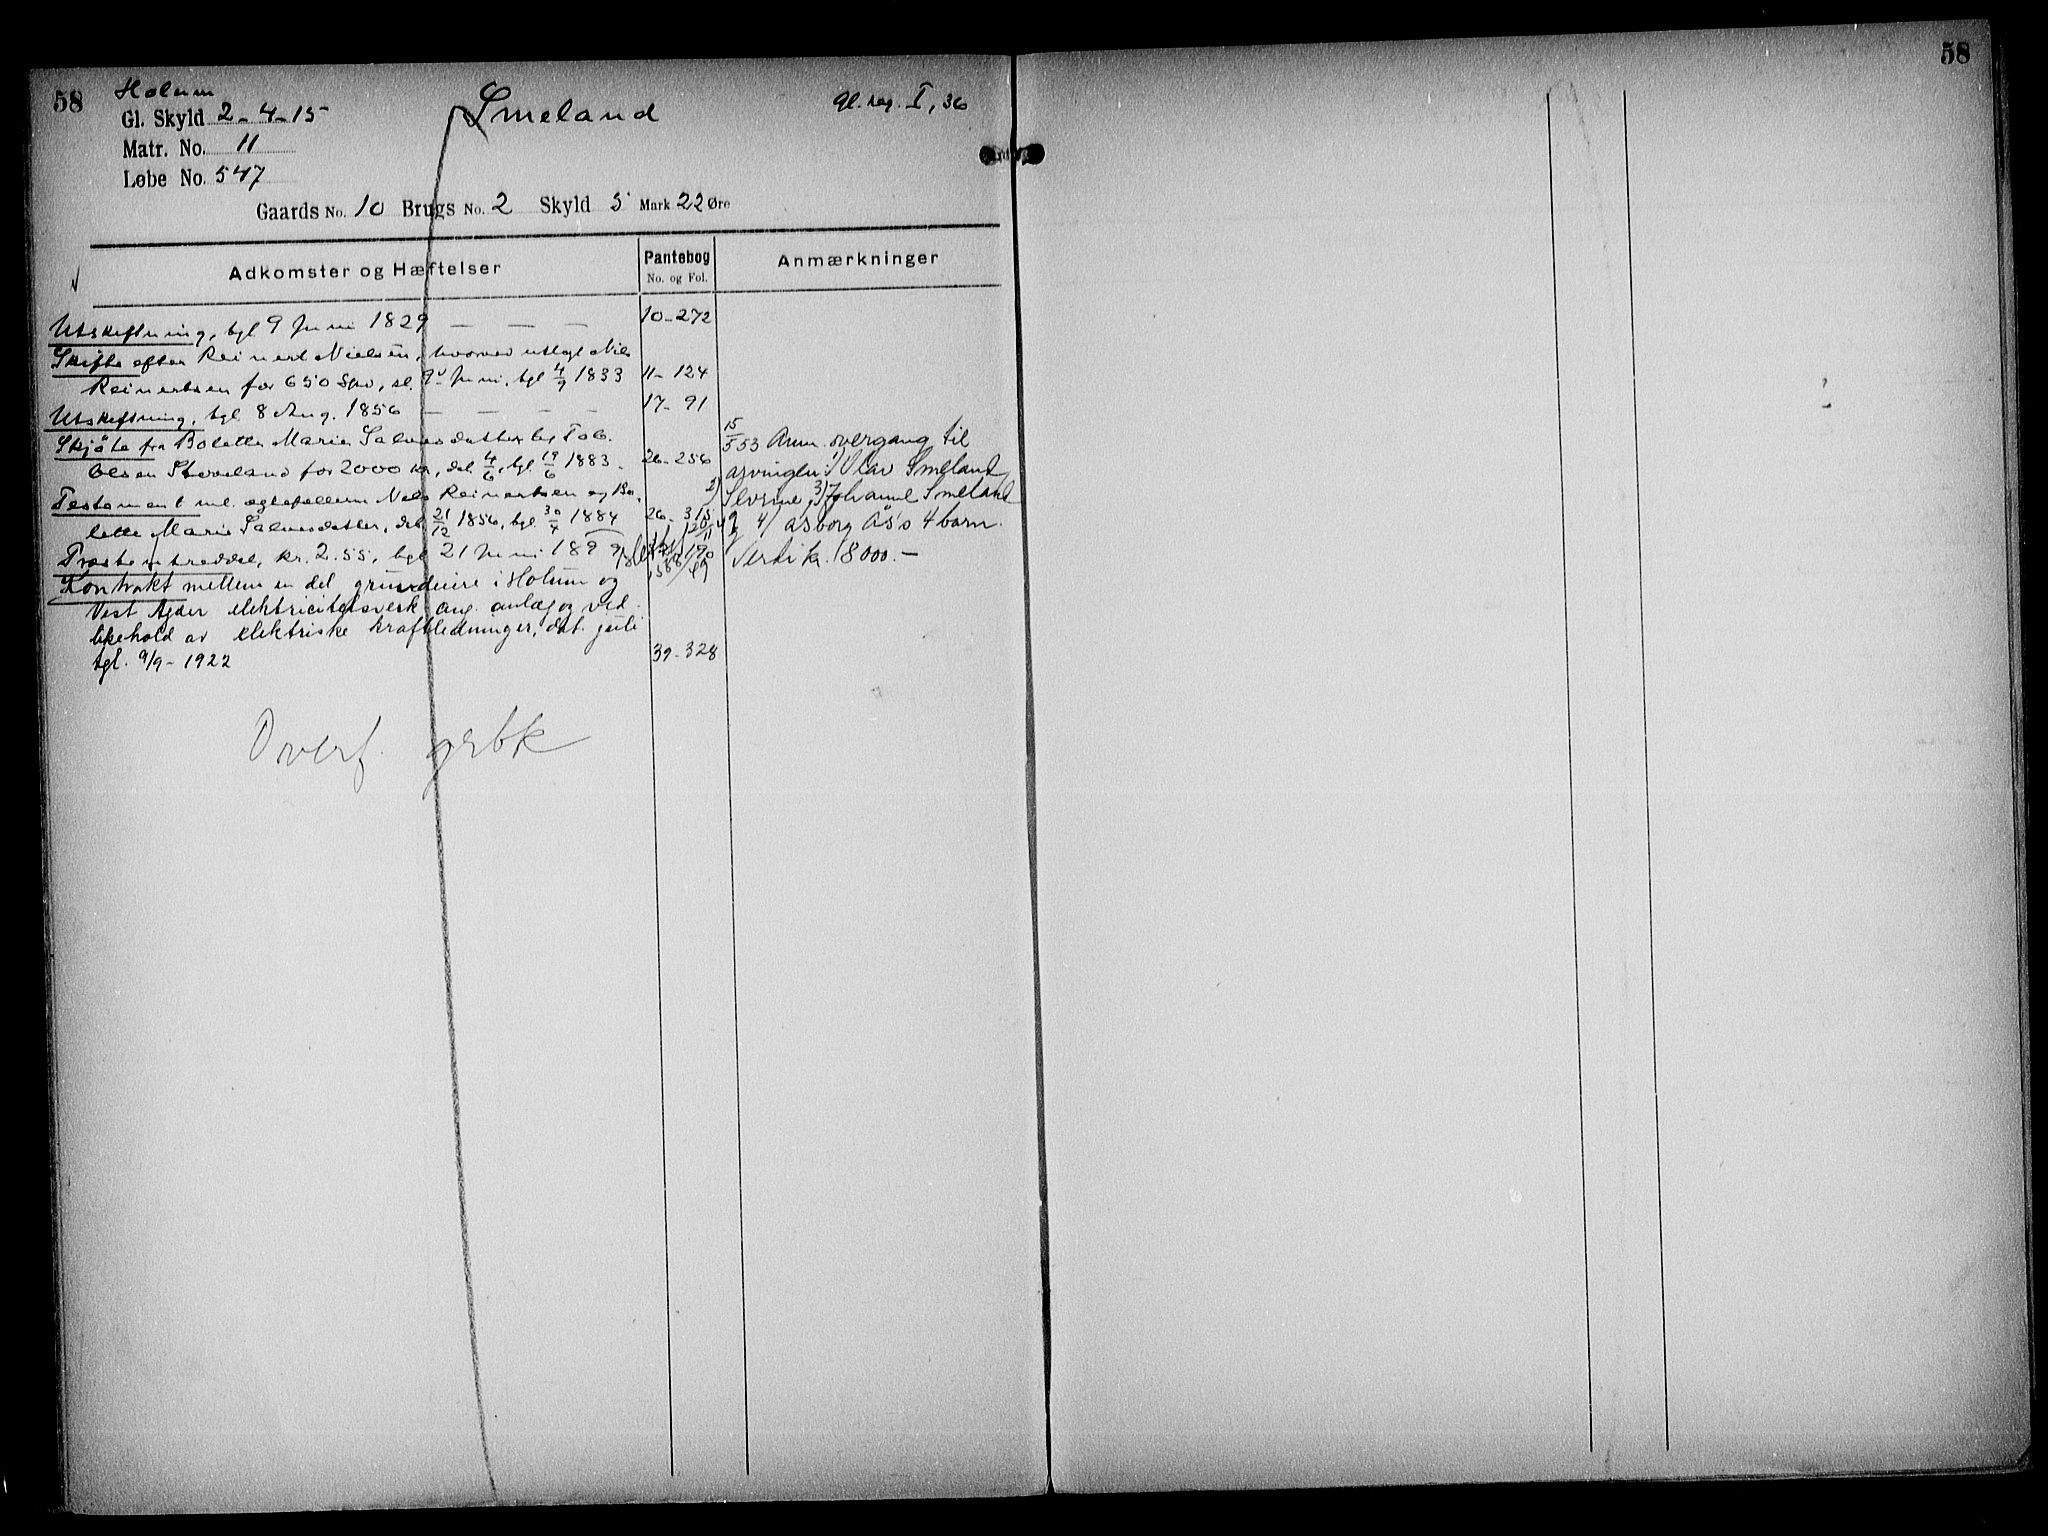 58
Holum
Gl. Skyld 2-4-15
Smeland
gl. reg. I, 36
Matr. No. 11
Løbe No. 547
Gaards No. 10 Brugs No. 2 Skyld 5 Mark 22 Øre
Adkomster og Hæftelser
Pantebog
No. og Fol.
Anmærkninger
Utskiftning, tgl 9 Juni 1829 — — — 10-272
Skifte efter Reinert Nielsen, hvorved utlagt Niels
Reinertsen for 650 Spd, sl. 9 Juni, tgl 4/9 1833 11-124
Utskiftning, tgl 8 Aug. 1856 — — — — 17-91
Skjöte fra Bolette Marie Salvesdatter til Tob.
Olsen Stoveland for 2000 kr, dat 4/6, tgl 19/6 1883 - 26-256
Testament ml. ægtefellerne Niels Reinertsen og Bo-
lette Marie Salvesdatter, dat 21/12 1856, tgl 30/4 1884 26-315
Præstentreddel, kr. 2.55, tgl 21 Juni 1899
Kontrakt mellem en del grundeiere i Holum og
Vest Agder elektricitetsverk ang. anlæg og ved-
likehold av elektriske kraftledninger, dat. juli
tgl. 9/9 - 1922 39-328
15/5 53 Anm. overgang til
arvinger: 1) Olav Smeland
2) Severine, 3) Johanne Smeland
4/ Åsborg Ås's 4 barn.
Verdi kr. 18000.-
Overf. grbk
58